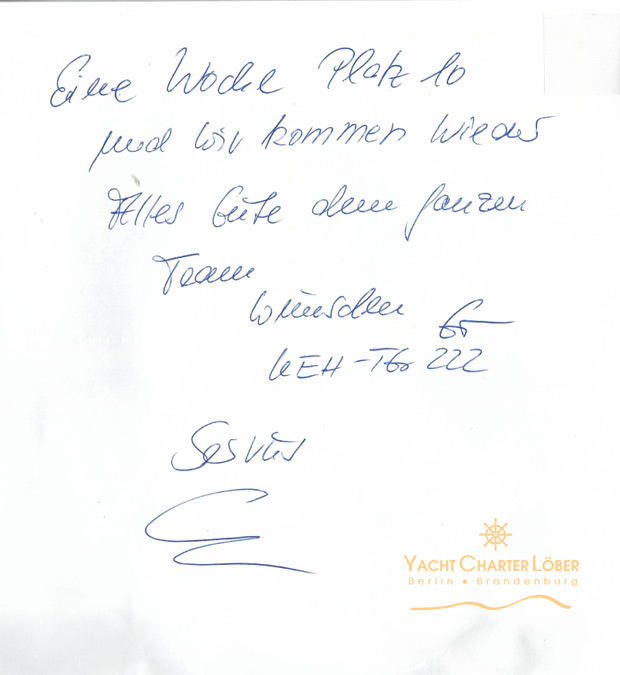 Eine Woche Platz 10
und wir kommen wieder
Alles Gute dem ganzen
Team
wünschen
KEH-TGr 222
Servus
YACHT CHARTER LÖBER
Berlin • Brandenburg